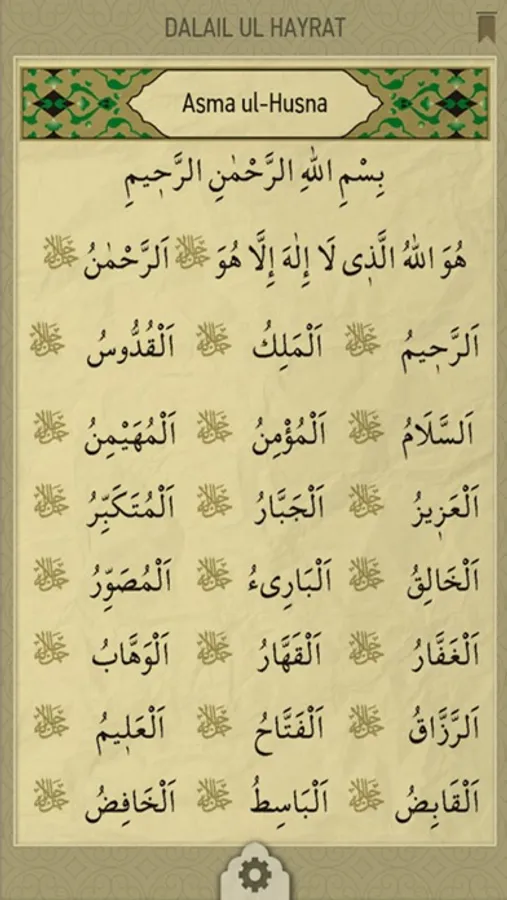 DALAIL UL HAYRAT
Asma ul-Husna
بِسْمِ اللهِ الرَّحْمٰنِ الرَّحٖيمِ
هُوَ اللهُ الَّذٖى لَا إِلٰهَ إِلَّا هُوَ جل جلاله اَلرَّحْمٰنُ جل جلاله
اَلرَّحٖيمُ جل جلاله اَلْمَلِكُ جل جلاله اَلْقُدُّوسُ جل جلاله
اَلسَّلَامُ جل جلاله اَلْمُؤْمِنُ جل جلاله اَلْمُهَيْمِنُ جل جلاله
اَلْعَزٖيزُ جل جلاله اَلْجَبَّارُ جل جلاله اَلْمُتَكَبِّرُ جل جلاله
اَلْخَالِقُ جل جلاله اَلْبَارِىءُ جل جلاله اَلْمُصَوِّرُ جل جلاله
اَلْغَفَّارُ جل جلاله اَلْقَهَّارُ جل جلاله اَلْوَهَّابُ جل جلاله
اَلرَّزَّاقُ جل جلاله اَلْفَتَّاحُ جل جلاله اَلْعَلٖيمُ جل جلاله
اَلْقَابِضُ جل جلاله اَلْبَاسِطُ جل جلاله اَلْخَافِضُ جل جلاله